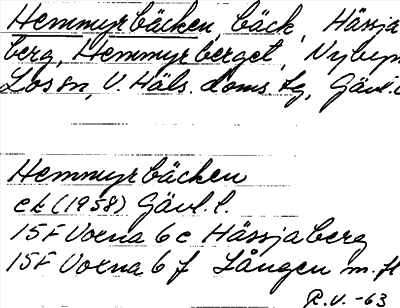 Hemmyrbäcken, bäck, Hässja
berg, Hemmyrberget, Nybyn
Los sn, V. Häls. doms. tg, Gävl.
Hemmyrbäcken
ek (1958) Gävl. l.
15F Voxna 6e Hässjaberg
15F Voxna 6f Lången m. fl
R.V. -63